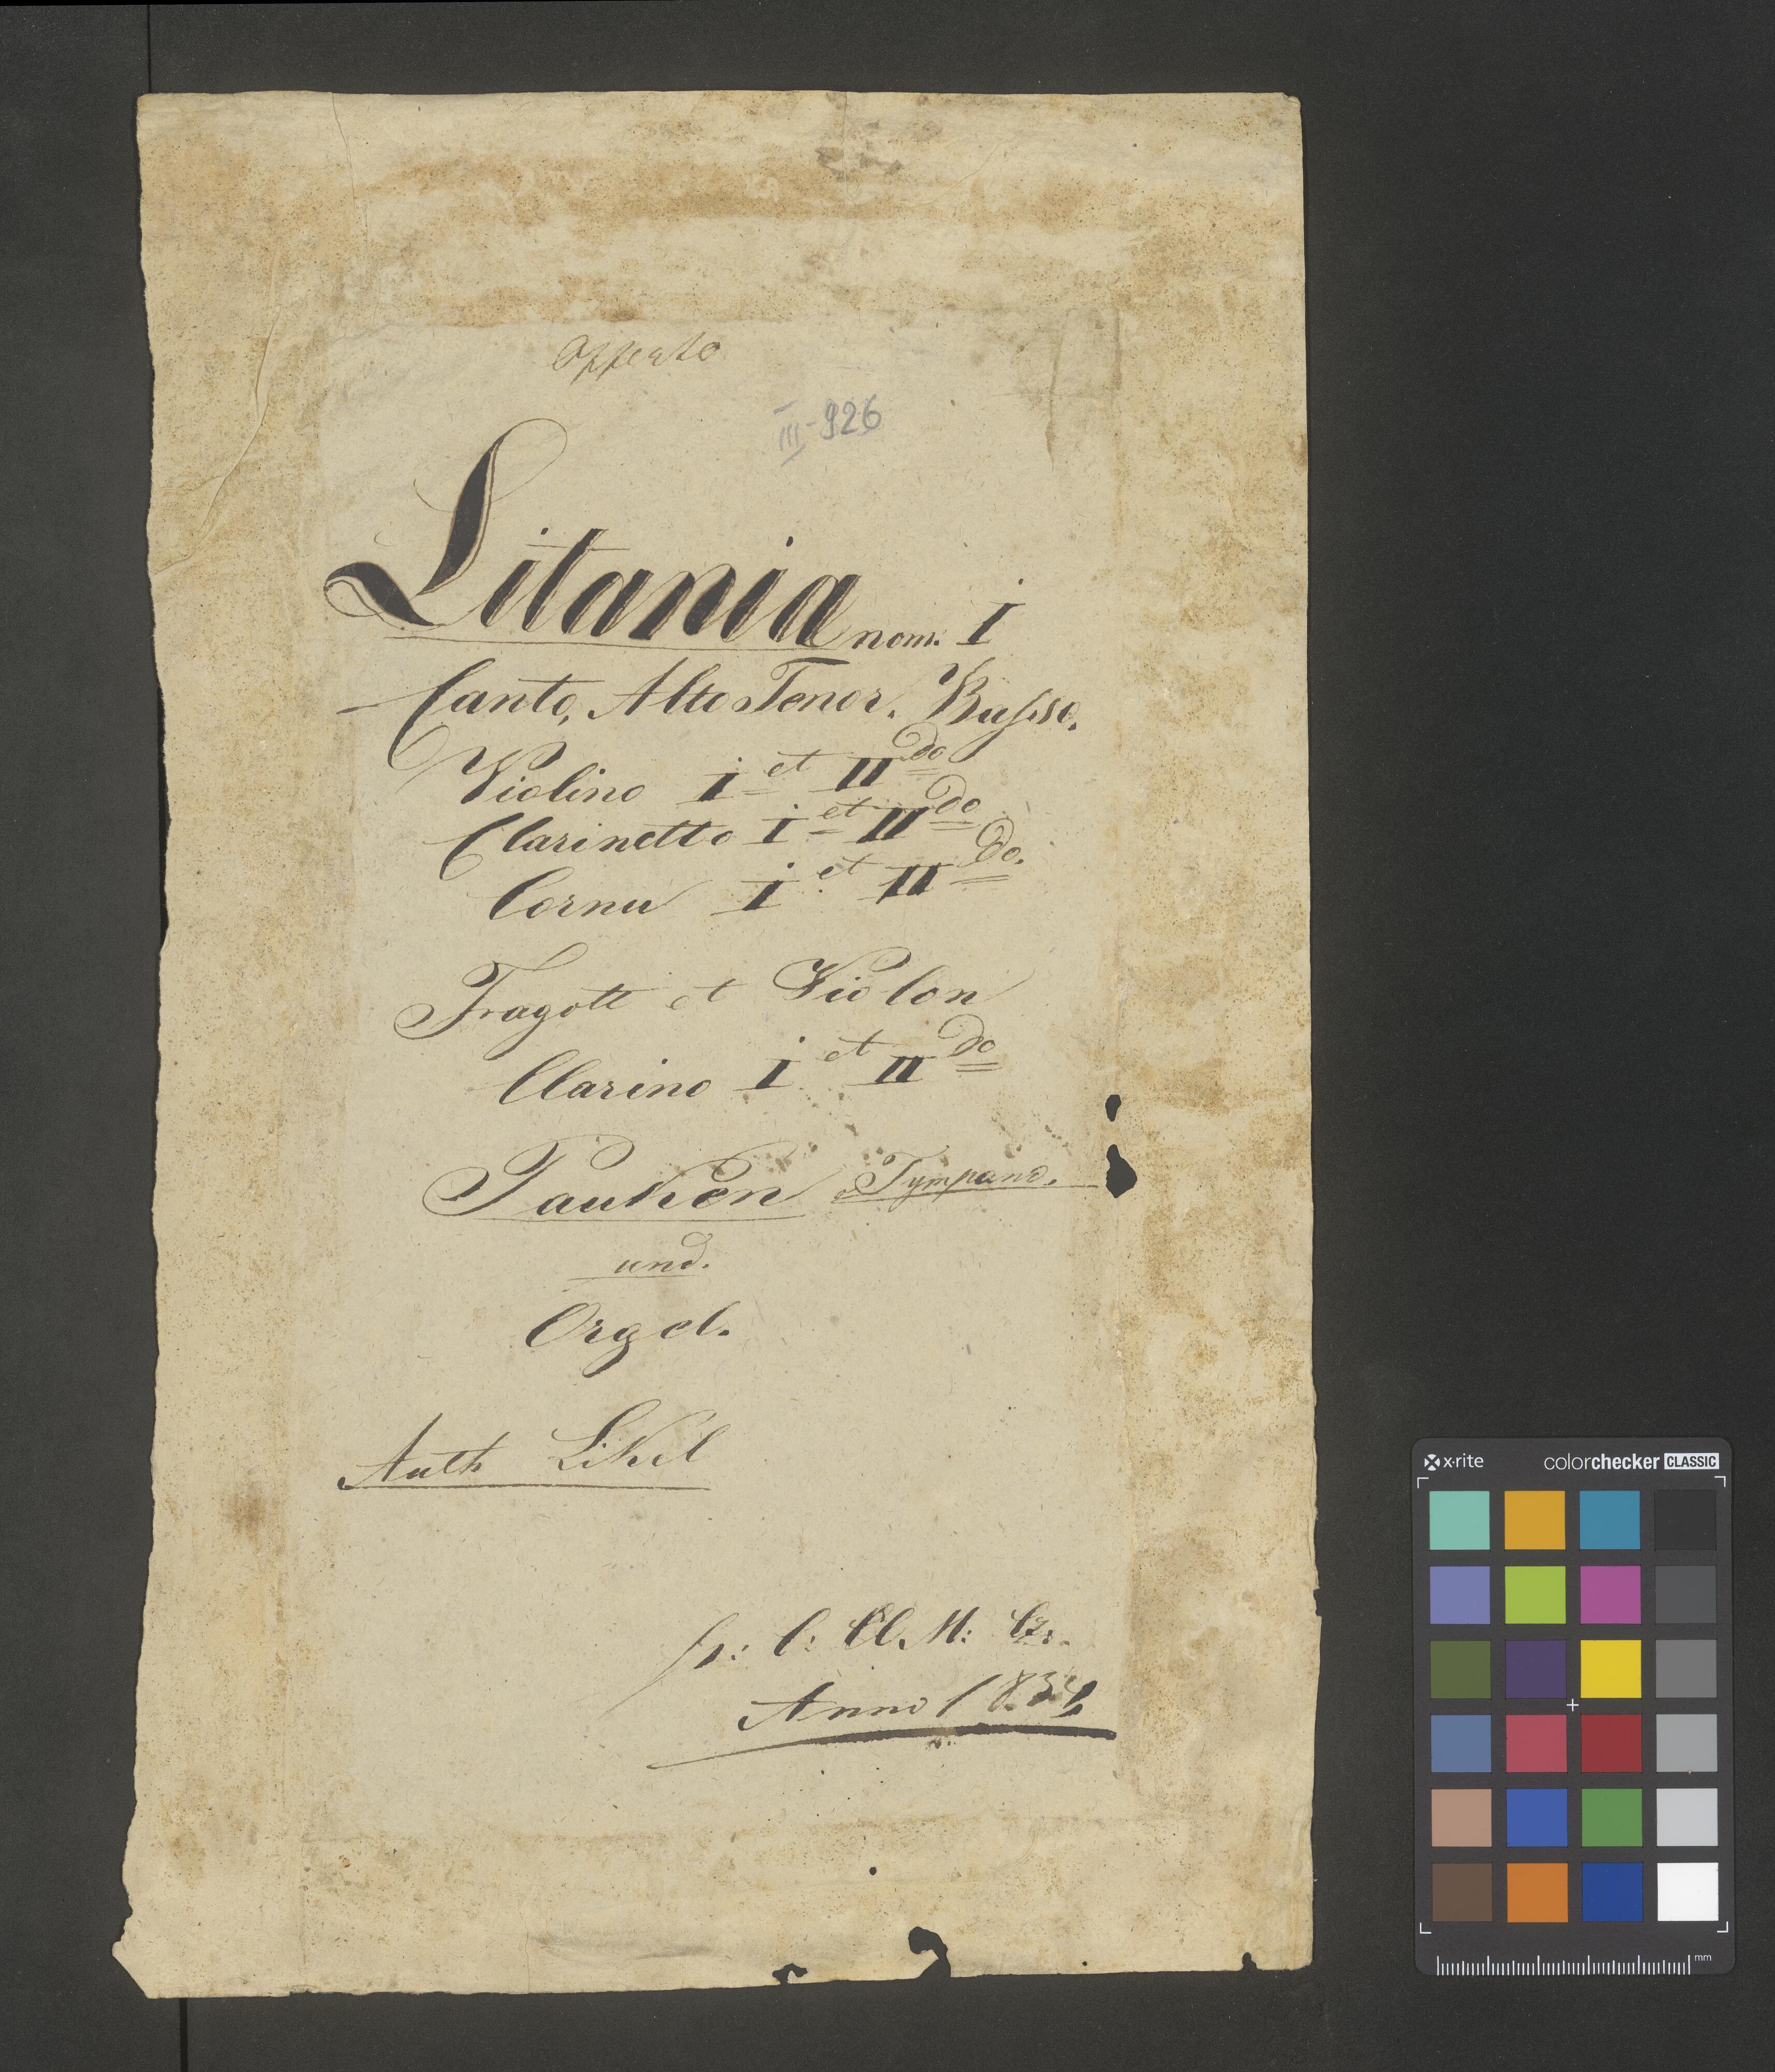 III-926
Litania nom: I
Canto, Alto Tenor, Basso.
Violino I et II do
Clarinetto I et II do
Cornu I et II do.
Fragott et Violon
Clarino I et II do
Pauken Tympano.
und.
Orgel.
Auth Likil
p: C: Cl. M: Cz.
Anno 1834
x·rite colorchecker CLASSIC
mm